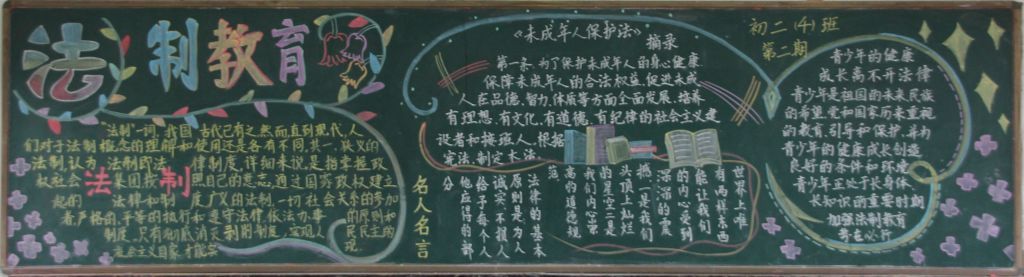 法制教育
"法制"一词,我国古代已有之,然而直到现代,人
们对于法制概念的理解和使用还是各有不同,其一,狭义的
法制,认为,法制即法律制度,详细来说,是指掌握政
权社会集团按照自己的意志,通过国家政权建立
起的法律和制度广义的法制,一切社会关系的参加
者严格的,平等的执行和遵守法律,依法办事的原则和
制度
法 制
《未成年人保护法》摘录
第一条 为了保护未成年人的身心健康
保障未成年人的合法权益,促进未成
人在品德、智力、体质等方面全面发展,培养
有理想、有文化、有道德、有纪律的社会主义建
设者和接班人,根据
宪法制定本法
名人名言
世界上唯
有两样东西
能让我们
的内心受到
深深的震
撼,一是我们
头顶上灿烂
的星空二是
我们内心崇
高的道德规
范
法律的基本
原则是:为人
诚实,不损人
给予每个人
他应得的部
分
初二(4)班
第二期
青少年的健康
成长离不开法律
青少年是祖国的未来,民族
的希望,党和国家历来重视
的教育、引导和保护,并为
青少年的健康成长创造
良好的条件和环境
青少年正处于长身体、
长知识的重要时期
加强法制教育
势在必行